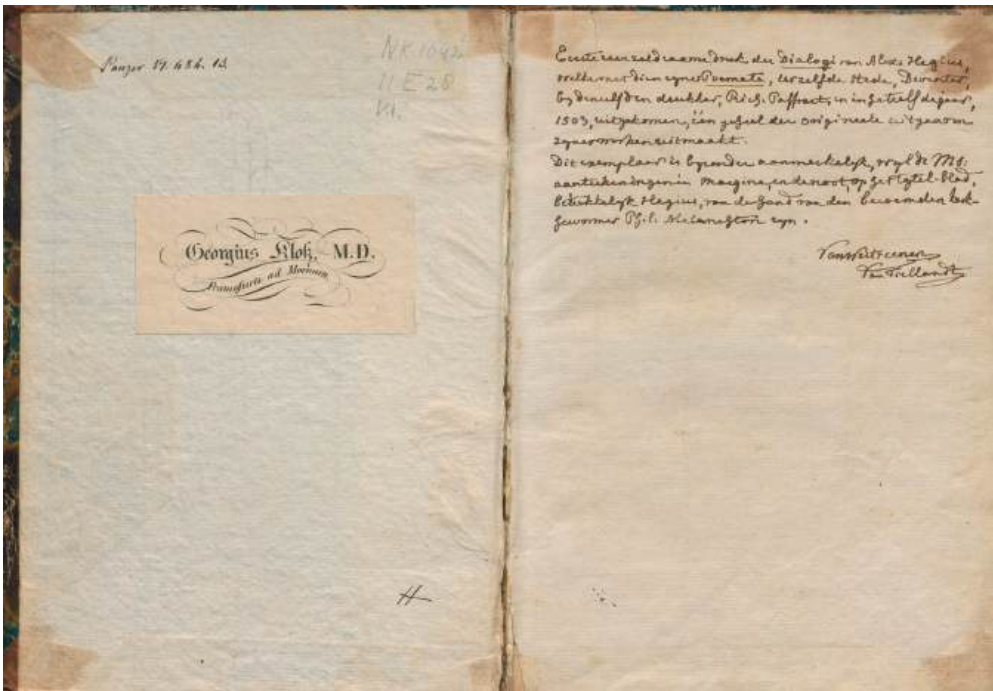 Panzer VI. 484. 13.
NK 1042
11 E 28
Kl.
Georgius Kloß, M.D.
Francofurti ad Moenum
Eerste en zeldzaame druk der Dialogi van Alex. Hegius,
welke met dien zyner Poemata, terzelfde stede, Deventer,
by denzelfden drukker, Rich. Paffraet, en in hetzelfde jaar,
1503, uitgekomen, één geheel der origineele uitgaven
zyner werken uitmaakt.
Dit exemplaar is byzonder aanmerkelyk, wyl de MS:
aanteekeningen in margine, en de noot, op het tytel-blad,
betrekkelyk Hegius, van de hand van den beroemden kerk-
hervormer Phil. Melanchton zyn.
Van Westreenen
Van Tiellandt
H